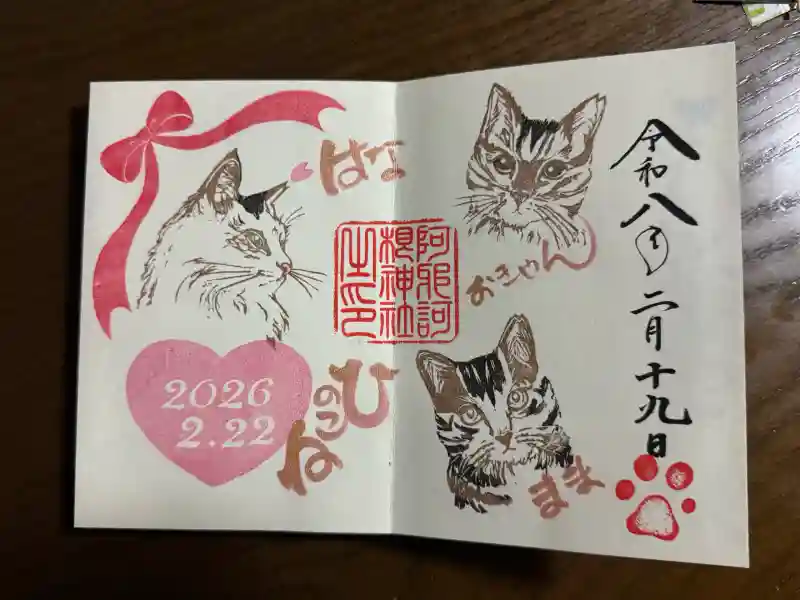 令和八年二月十九日
おきゃん
まま
阿邪訶
根神社
之印
はな
ねこのひ
2026
2.22